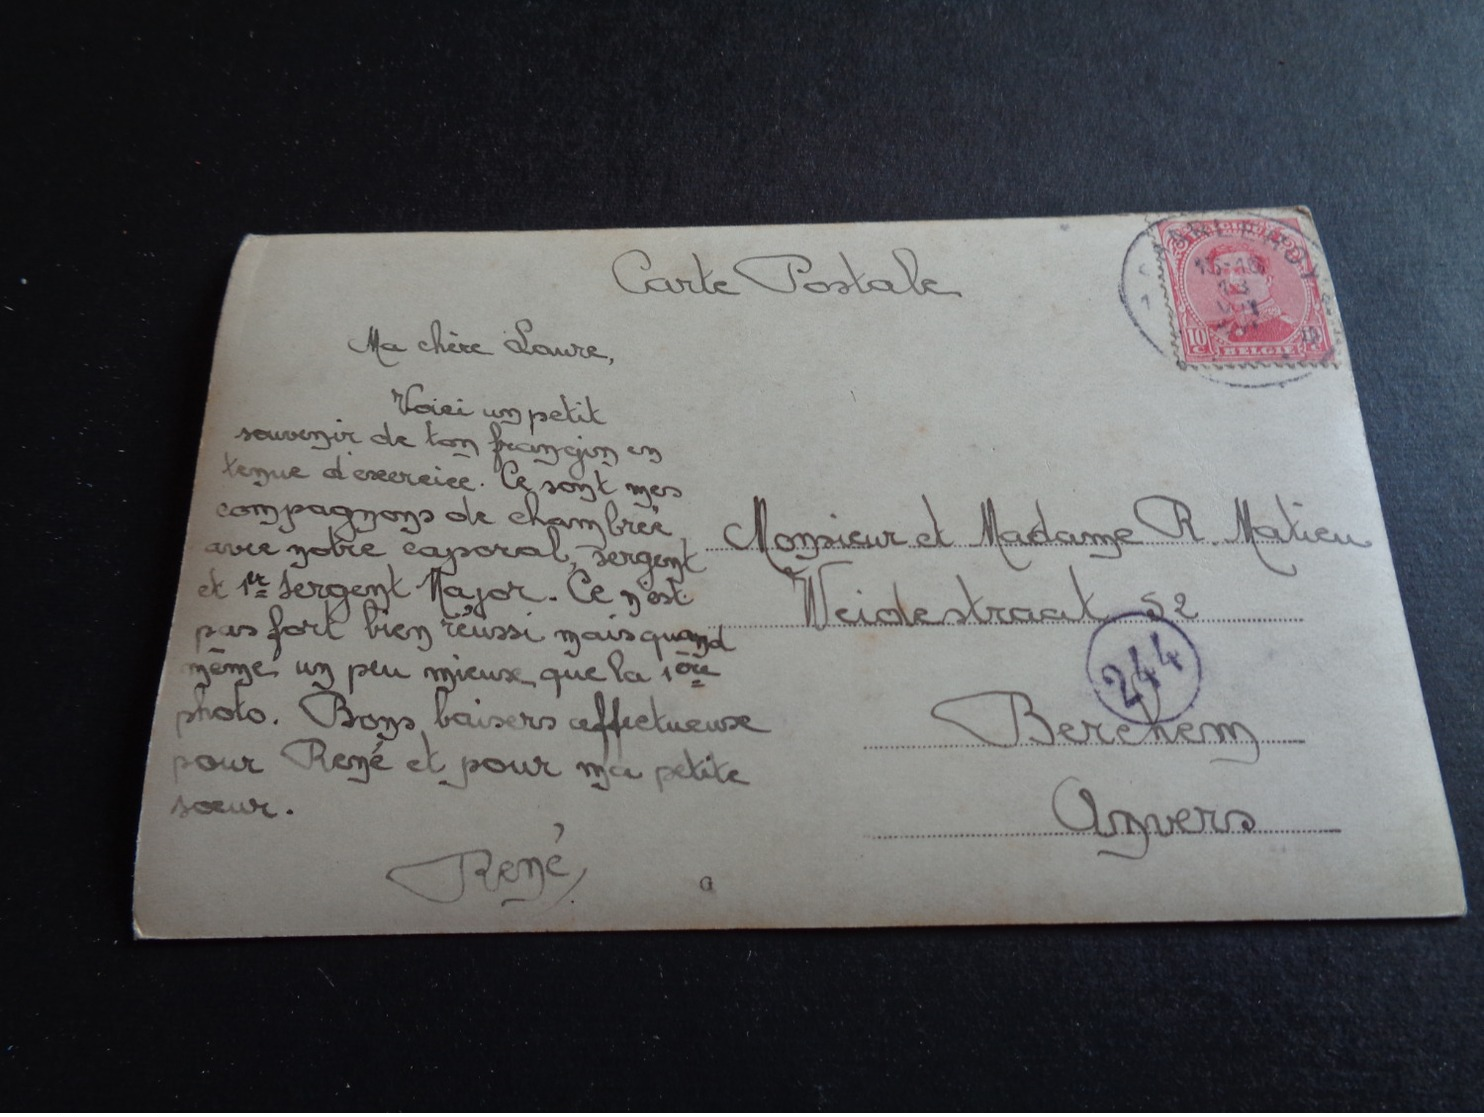 Carte Postale
Ma chère Laure,
Voici un petit
souvenir de ton frangin en
tenue d'exercice. Ce sont mes
compagnons de chambrée
avec notre caporal, sergent
et 1er Sergent Major. Ce n'est
pas fort bien réussi mais quand
même un peu mieux que la 1ère
photo. Bons baisers affectueux
pour René et pour ma petite
sœur.
René
Monsieur et Madame R. Matieu
Weidestraat 52
Berchem
Anvers
244
CHARLEROY
15-16
10 C BELGIE